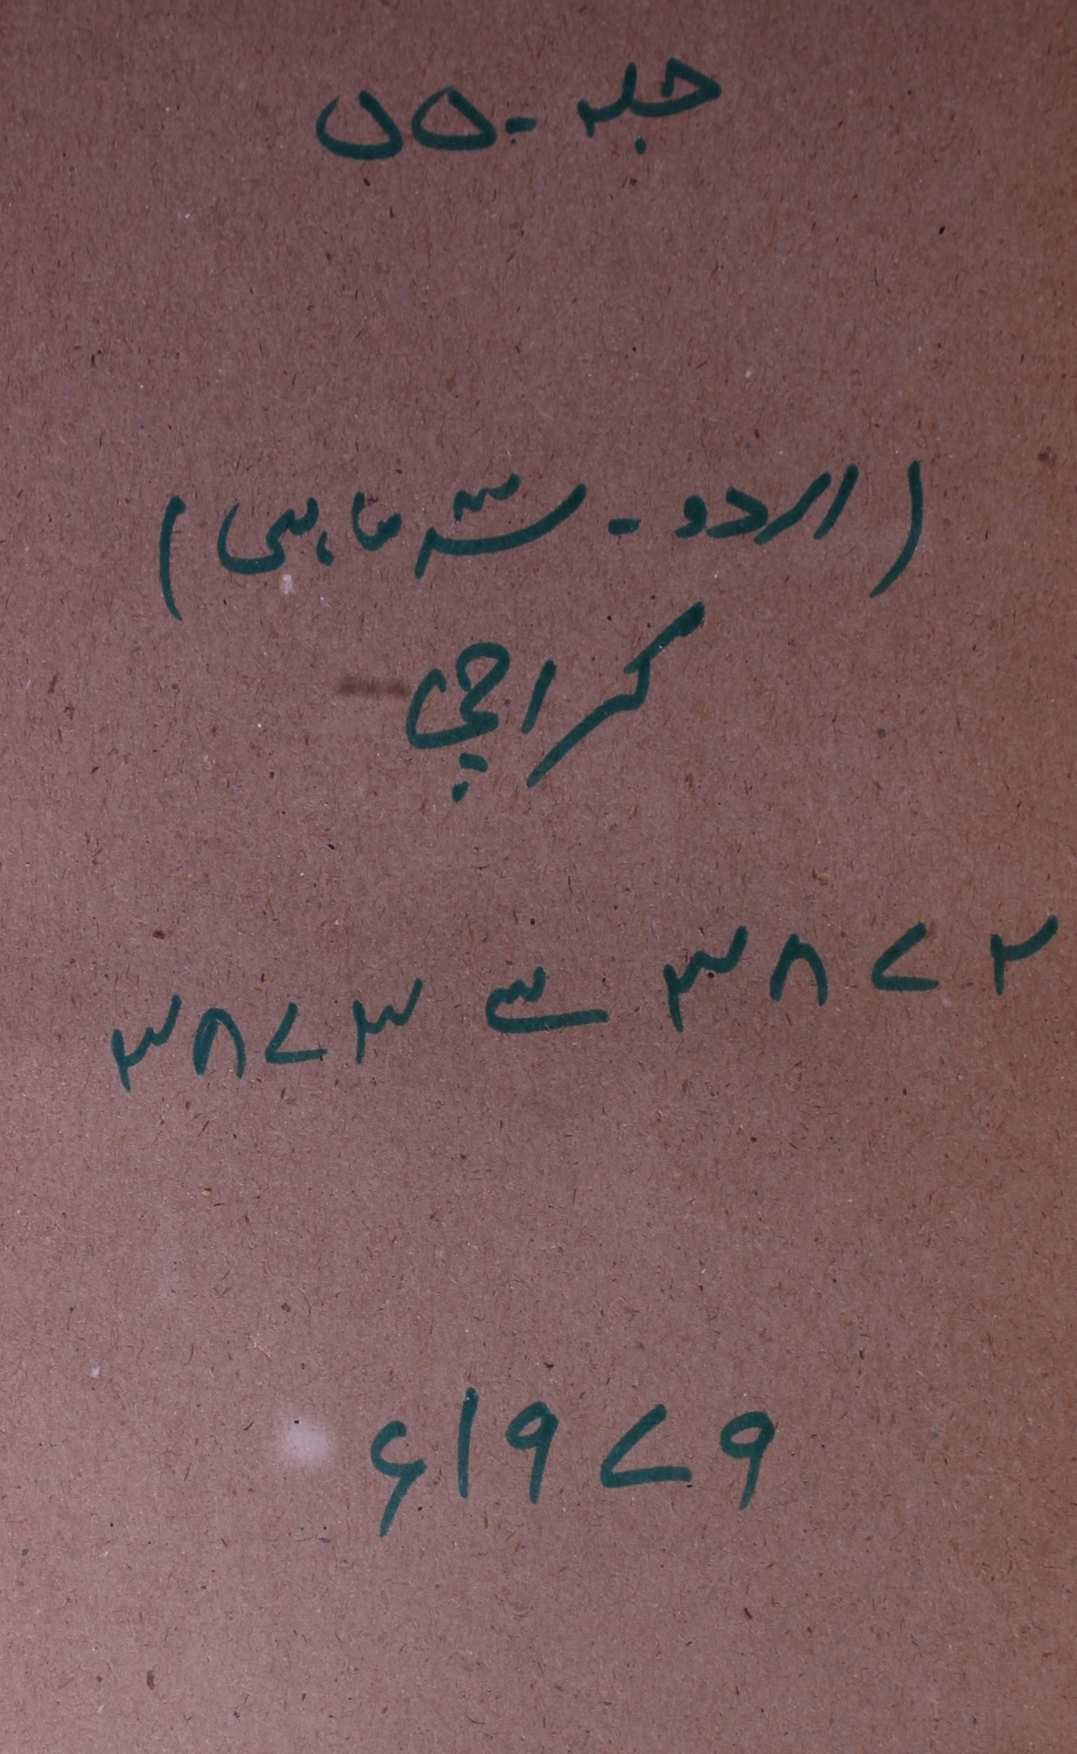 جلد - ۵۵
(اردو - سہ ماہی)
کراچی
۳۸۷۲ سے ۳۸۷۳
۱۹۷۹ء